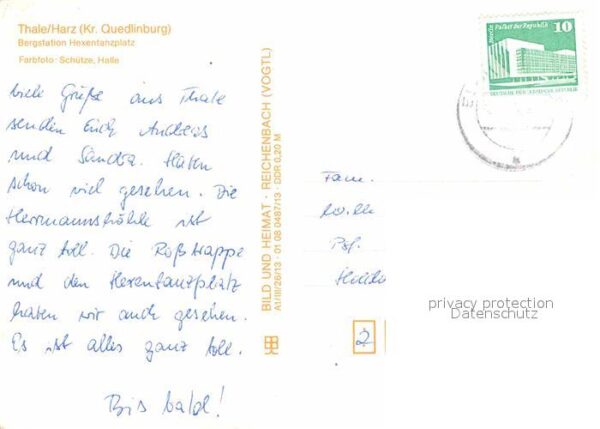 Thale/Harz (Kr. Quedlinburg)
Bergstation Hexentanzplatz
Farbfoto: Schütze, Halle
Viele Grüße aus Thale
senden Euch Andreas
und Sandra. Haben
schon viel gesehen. Die
Herrmannshöhle ist
ganz toll. Die Roßtrappe
und den Hexentanzplatz
haben wir auch gesehen.
Es ist alles ganz toll.
Bis bald!
BILD UND HEIMAT · REICHENBACH (VOGTL)
A1/III/26/13 · 01 08 0487/13 · DDR 0,20 M
Berlin Palast der Republik
10
DEUTSCHE DEMOKRATISCHE REPUBLIK
Fam.
privacy protection
Datenschutz
2